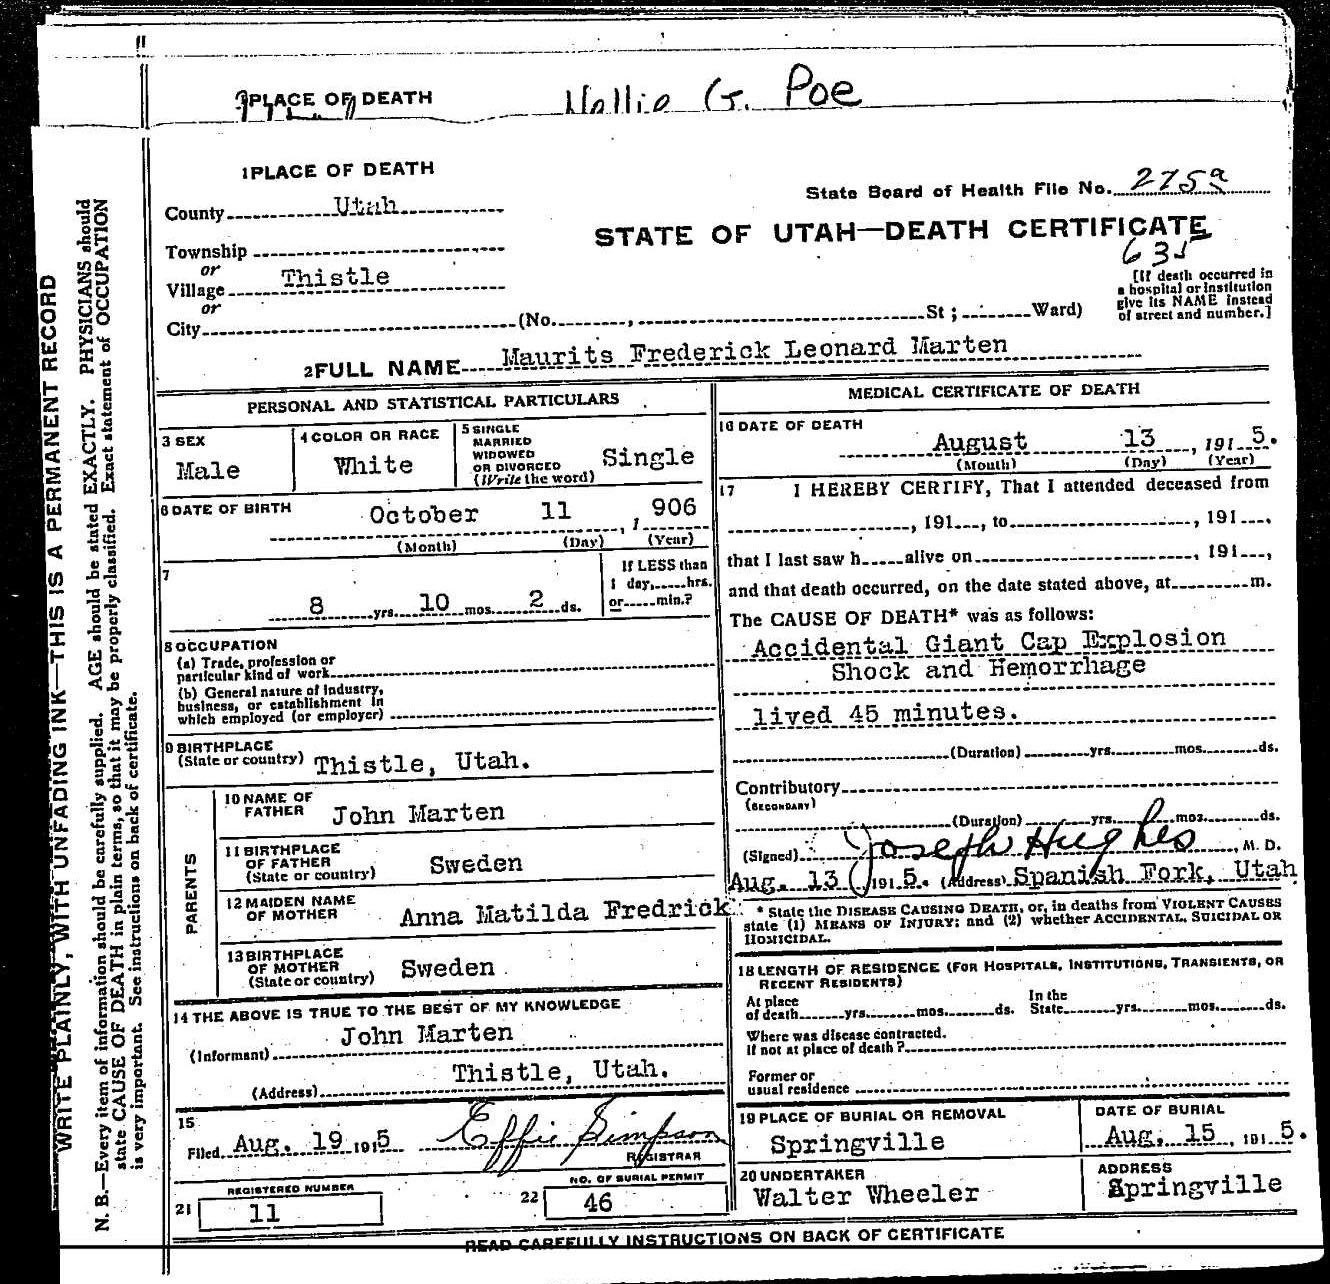 PLACE OF DEATH G. Poe
1 PLACE OF DEATH
State Board of Health File No. 275
County Utah
STATE OF UTAH—DEATH CERTIFICATE
635
Township
or
Village Thistle
or
City (No. , St ; Ward)
[If death occurred in
a hospital or institution
give its NAME instead
of street and number.]
2 FULL NAME Maurits Frederick Leonard Marten
PERSONAL AND STATISTICAL PARTICULARS
3 SEX
Male
4 COLOR OR RACE
White
5 SINGLE
MARRIED
WIDOWED
OR DIVORCED
(Write the word)
Single
6 DATE OF BIRTH
October 11, 1906
(Month) (Day) (Year)
7
8 yrs. 10 mos. 2 ds.
If LESS than
1 day, hrs.
or min.?
8 OCCUPATION
(a) Trade, profession or
particular kind of work
(b) General nature of Industry,
business, or establishment in
which employed (or employer)
9 BIRTHPLACE
(State or country) Thistle, Utah.
PARENTS
10 NAME OF
FATHER John Marten
11 BIRTHPLACE
OF FATHER
(State or country) Sweden
12 MAIDEN NAME
OF MOTHER Anna Matilda Fredrick
13 BIRTHPLACE
OF MOTHER
(State or country) Sweden
14 THE ABOVE IS TRUE TO THE BEST OF MY KNOWLEDGE
(Informant) John Marten
(Address) Thistle, Utah.
15
Filed Aug. 19 1915 Effie Simpson
REGISTRAR
21 REGISTERED NUMBER
11
22 NO. OF BURIAL PERMIT
46
MEDICAL CERTIFICATE OF DEATH
16 DATE OF DEATH
August 13, 1915.
(Month) (Day) (Year)
17 I HEREBY CERTIFY, That I attended deceased from
, 191 , to , 191 ,
that I last saw h alive on , 191 ,
and that death occurred, on the date stated above, at m.
The CAUSE OF DEATH* was as follows:
Accidental Giant Cap Explosion
Shock and Hemorrhage
lived 45 minutes.
(Duration) yrs. mos. ds.
Contributory
(SECONDARY)
(Duration) yrs. mos. ds.
(Signed) Joseph Hughes, M. D.
Aug. 13 1915. (Address) Spanish Fork, Utah
* State the DISEASE CAUSING DEATH, or, in deaths from VIOLENT CAUSES
state (1) MEANS OF INJURY; and (2) whether ACCIDENTAL, SUICIDAL OR
HOMICIDAL.
18 LENGTH OF RESIDENCE (FOR HOSPITALS, INSTITUTIONS, TRANSIENTS, OR
RECENT RESIDENTS)
At place
of death yrs. mos. ds.
In the
State yrs. mos. ds.
Where was disease contracted.
If not at place of death ?
Former or
usual residence
19 PLACE OF BURIAL OR REMOVAL
Springville
DATE OF BURIAL
Aug. 15, 1915.
20 UNDERTAKER
Walter Wheeler
ADDRESS
Springville
READ CAREFULLY INSTRUCTIONS ON BACK OF CERTIFICATE
WRITE PLAINLY, WITH UNFADING INK—THIS IS A PERMANENT RECORD
N. B.—Every item of information should be carefully supplied. AGE should be stated EXACTLY. PHYSICIANS should
state CAUSE OF DEATH in plain terms, so that it may be properly classified. Exact statement of OCCUPATION
is very important. See instructions on back of certificate.